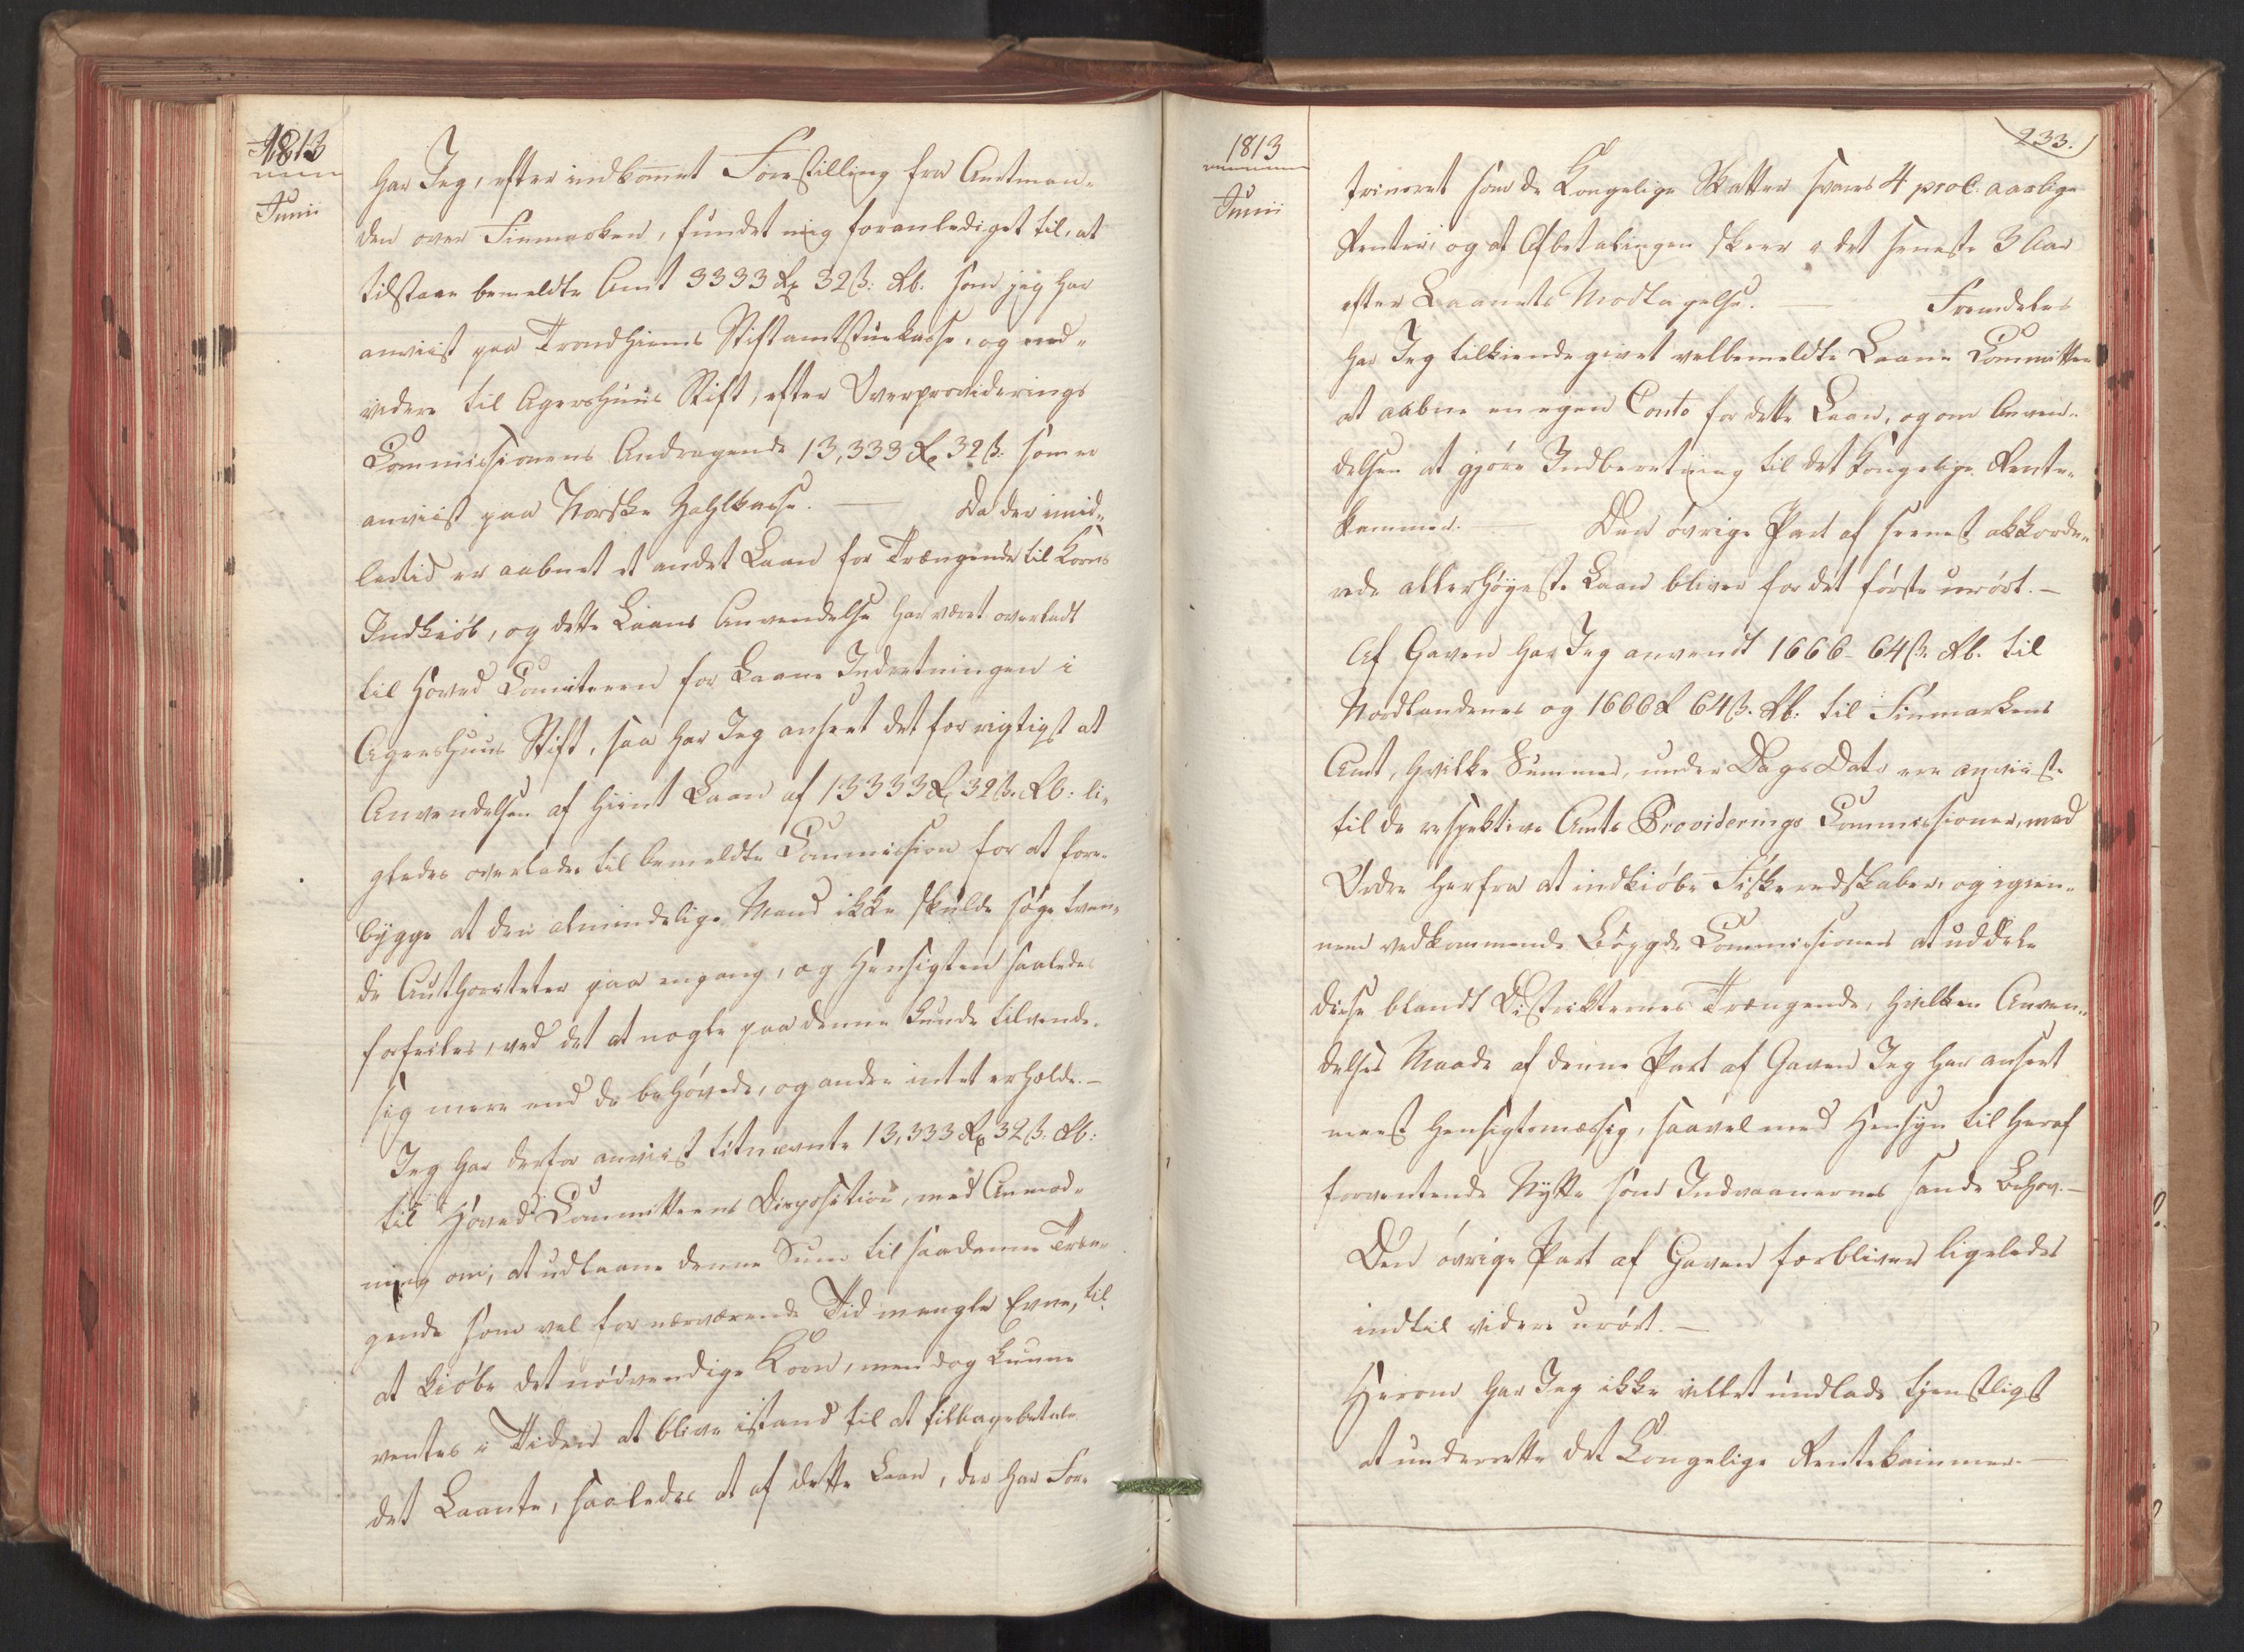 1813
Junii
har Jeg, efter indkommet Forestilling fra Amtman-
den over Finmarken, fundet mig foranlediget til, at
tilstaae bemeldte Amt 3333 Rd 32 ß. Rb. som jeg har
anviist paa Trondhiems Stiftamtstuekasse, og end-
videre til Agershuus Stift, efter Overproviderings
Commissionens Andragende 13,333 Rd 32 ß. som er
anviist paa Norske Zahlkasse. — Da der imid-
lertid er aabnet et andet Laan for Trængende til Korns
Indkiøb, og dette Laans Anvendelse har været overladt
til Hoved Comiteen for Laane Indretningen i
Agershuus Stift, saa har Jeg anseet det for rigtigst at
Anvendelsen af hiint Laan af 13333 Rd 32 ß. Rb: li-
gledes overlades til bemeldte Commission for at fore-
bygge at den almindelige Mand ikke skulde søge tven-
de Authoriteter paa engang, og Hensigten saaledes
forfeiles, ved det at nogle paa denne Kunde tilvende
sig mere end de behøvede, og andre intet erholde. —
Jeg har derfor anviist titnævnte 13,333 Rd 32 ß. Rb:
til Hoved Committeens Disposition, med Anmod-
ning om, at udlaane denne Sum til saadanne Træn-
gende som vel for nærværende Tid mangle Evne, til
at kiøbe det nødvendige Korn, men dog kunne
ventes i Tiden at blive istand til at tilbagebetale
det Laante, saaledes at af dette Laan, der har For-
1813
Junii
233.
trinsret som de Kongelige Skatter svares 4 proC. aarlige
Renter, og at Afbetalingen skeer i det seneste 3 Aar
efter Laanets Modtagelse. — Fremdeles
har Jeg tilkiendegivet velbemeldte Laane Committee
at aabne en egen Conto for dette Laan, og om Anven-
delsen at gjøre Indberetning til det kongelige Rente-
kammer. Den øvrige Part af seenest akkorde-
rede allerhøyeste Laan bliver for det første urørt. —
Af Gaven har Jeg anvendt 1666 - 64 ß. Rb. til
Nordlandenes og 1666 Rd 64 ß. Rb: til Finmarkens
Amt, hvilke Summer, under Dags Dato ere anviiste
til de respektive Amts Providerings Commissioner, med
Ordre herfra at indkiøbe Fiskeredskaber, og igien-
nem vedkommende Bøygde Commissioner at uddele
disse blandt Distrikternes Trængende, hvilken Anven-
delses Maade af denne Part af Gaven Jeg har anseet
meest hensigtsmæssig, saavel med Hensyn til heraf
forventende Nytte som Indvaanernes sande Behov. —
Den øvrige Part af Gaven forbliver ligeledes
indtil videre urørt. —
Herom har Jeg ikke villet undlade tjenstligst
at underrette det Kongelige Rentekammer. —